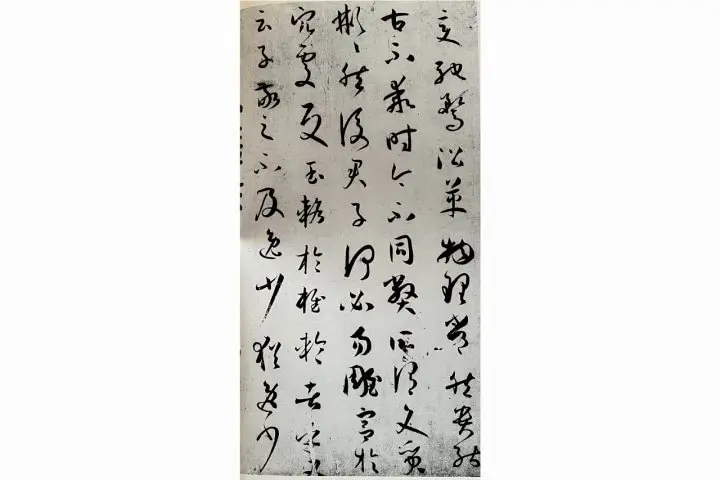 變馳騖沿革物理常然貴能
古不乖時今不同弊所謂文質
彬彬然後君子何必易雕宮於
穴處反玉輅於椎輪者乎又
云子敬之不及逸少猶逸少